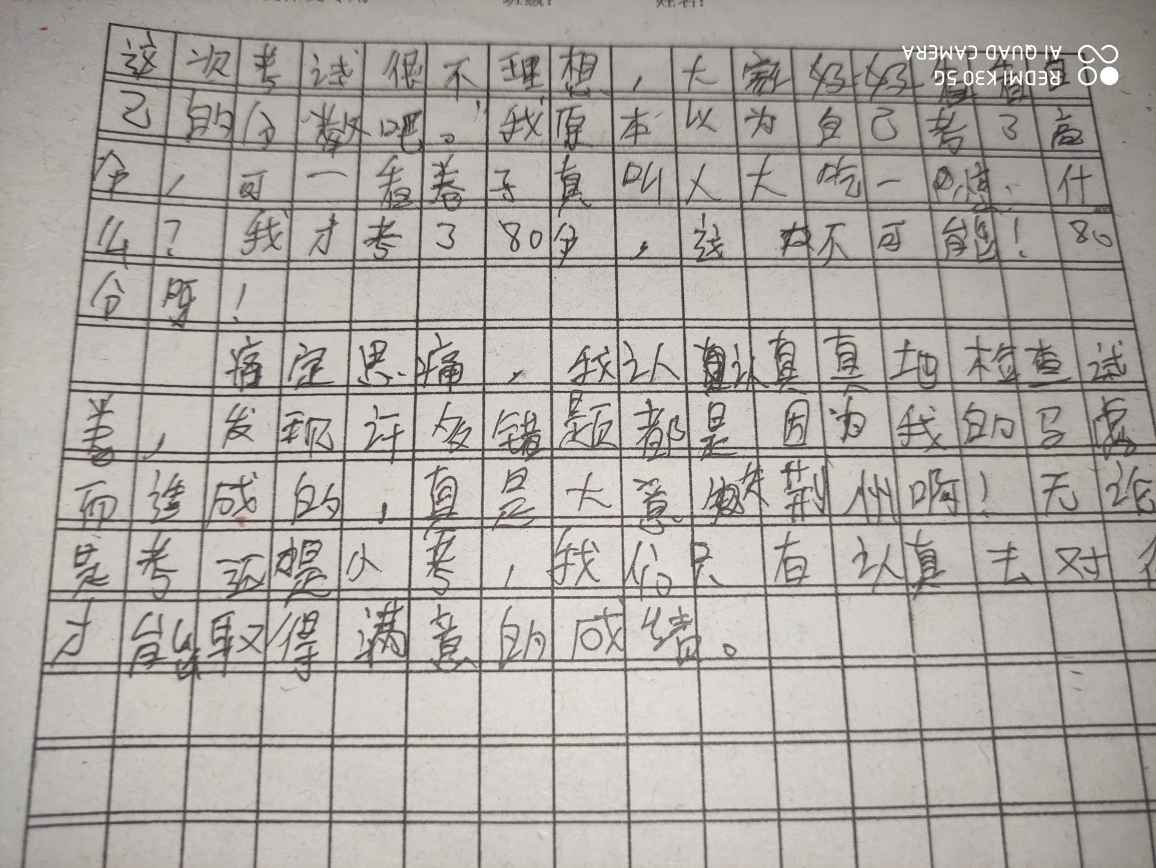 这次考试很不理想，大家好好看看自
己的分数吧。我原本以为自己考了高
分，可一看卷子真叫人大吃一惊.什
么？我才考了80分，这不可能！80
分啊！
痛定思痛，我认真认真真地检查试
卷，发现许多错题都是因为我的马虎
而造成的，真是大意失荆州啊！无论
是考还是小考，我们只有认真去对
才能取得满意的成绩。
REDMI K30 5G
AI QUAD CAMERA